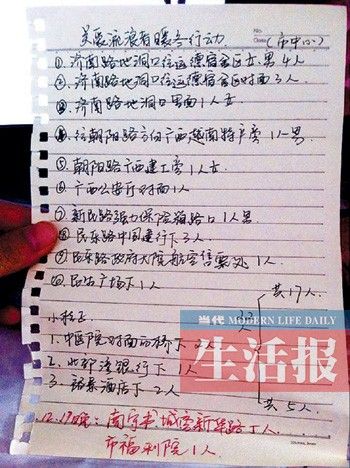 美丽流浪者暖冬行动
No.
Date
(市中心)
①济南路地洞口往运德宿舍区女、男4人
②济南路地洞口往运德宿舍区对面3人
③济南路地洞口里面1人女
④往朝阳路方向广西越南特产旁1人男
⑤朝阳路广西建工旁1人女
⑥广西公安厅对面1人
⑦新民路强力保险箱路口1人男
⑧民乐路中国建行下3人
⑨民乐路政府大院航空售票处1人
⑩民生广场下1人
共17人
小桂正
1.中医院对面动桥下2人
2.北部湾银行下1人
3.银泰酒店下2人
共5人
12.17晚:南宁书城管新华路1人
市福利院1人
当代
MODERN LIFE DAILY
生活报